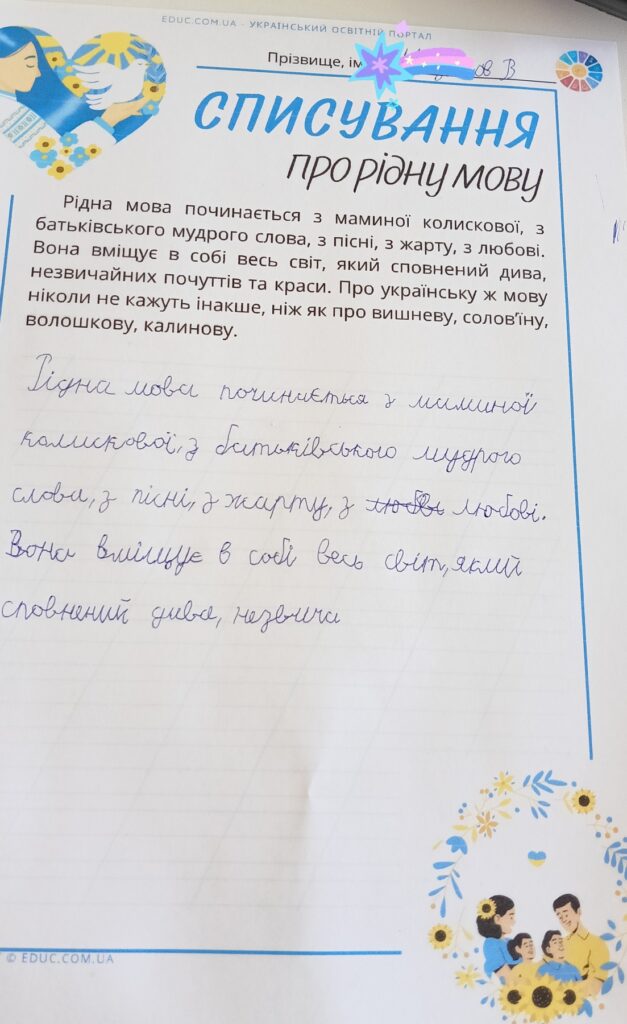 EDUC.COM.UA - УКРАЇНСЬКИЙ ОСВІТНІЙ ПОРТАЛ
Прізвище, ім ов В
СПИСУВАННЯ
про рідну мову
Рідна мова починається з маминої колискової, з
батьківського мудрого слова, з пісні, з жарту, з любові.
Вона вміщує в собі весь світ, який сповнений дива,
незвичайних почуттів та краси. Про українську ж мову
ніколи не кажуть інакше, ніж як про вишневу, солов’їну,
волошкову, калинову.
Рідна мова починається з маминої
колискової, з батьківського мудрого
слова, з пісні, з жарту, з любові.
Вона вміщує в собі весь світ, який
сповнений дива, незвича
© EDUC.COM.UA